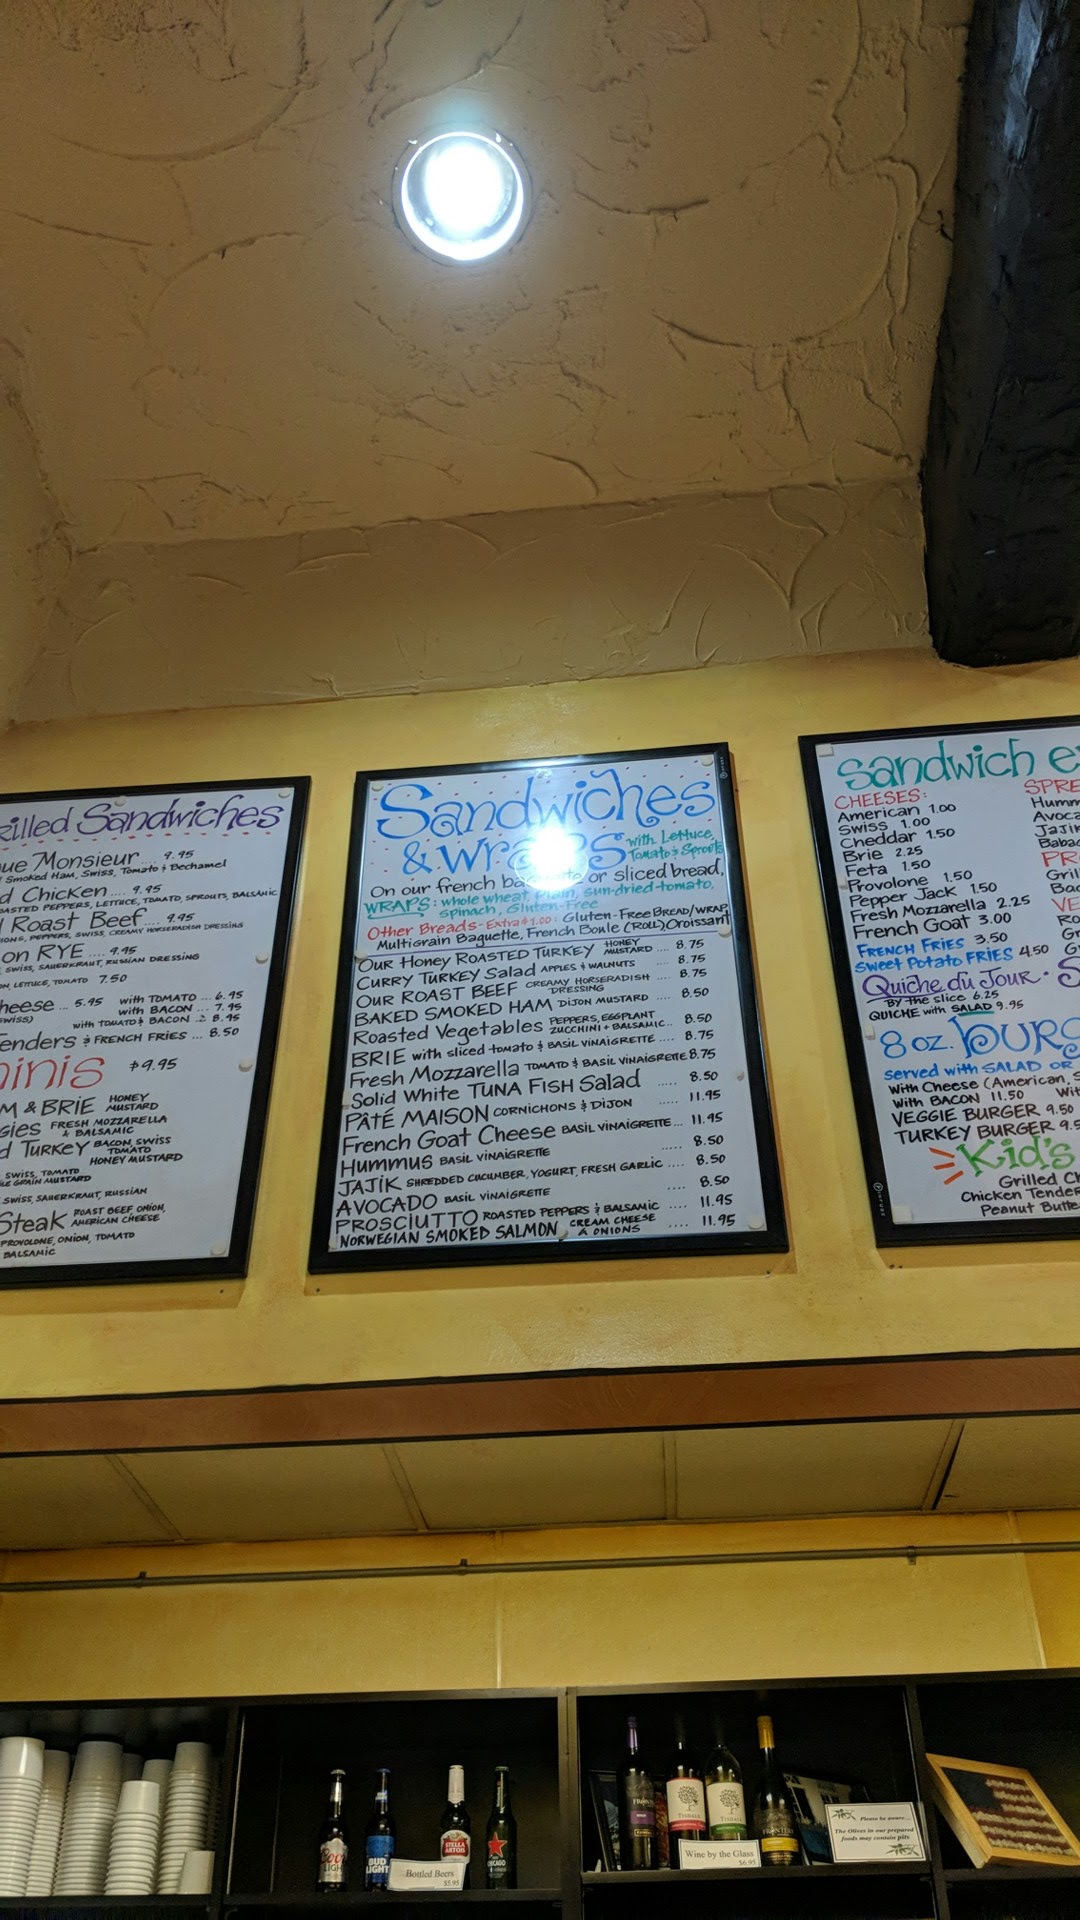 rilled Sandwiches
ue Monsieur .... 9.95
Smoked Ham, Swiss, Tomato & Bechamel
d Chicken .... 9.95
OASTED PEPPERS, LETTUCE, TOMATO, SPROUTS, BALSAMIC
Roast Beef ... 9.95
IONS, PEPPERS, SWISS, CREAMY HORSERADISH DRESSING
on RYE .... 9.95
SWISS, SAUERKRAUT, RUSSIAN DRESSING
ON, LETTUCE, TOMATO 7.50
heese ... 5.95 with TOMATO ... 6.95
with BACON ... 7.95
with TOMATO & BACON ... 8.95
enders & FRENCH FRIES ... 8.50
inis $9.95
M & BRIE HONEY MUSTARD
gies FRESH MOZZARELLA & BALSAMIC
d TURKEY BACON, SWISS TOMATO HONEY MUSTARD
SWISS, TOMATO
LE GRAIN MUSTARD
SWISS, SAUERKRAUT, RUSSIAN
Steak ROAST BEEF ONION, AMERICAN CHEESE
PROVOLONE, ONION, TOMATO
BALSAMIC
Sandwiches
& wraps with Lettuce, Tomato & Sprouts
On our french baguette or sliced bread,
WRAPS: whole wheat, plain, sun-dried-tomato,
spinach, Gluten-Free
Other Breads - Extra $1.00: Gluten-Free BREAD/WRAP,
Multigrain Baguette, French Boule (ROLL), Croissant
Our Honey ROASTED TURKEY HONEY MUSTARD .... 8.75
CURRY TURKEY Salad APPLES & WALNUTS .... 8.75
Our ROAST BEEF CREAMY HORSERADISH DRESSING .... 8.75
BAKED SMOKED HAM DIJON MUSTARD .... 8.50
Roasted Vegetables PEPPERS, EGGPLANT ZUCCHINI & BALSAMIC ... 8.50
BRIE with sliced tomato & BASIL VINAIGRETTE ... 8.75
Fresh Mozzarella TOMATO & BASIL VINAIGRETTE 8.75
Solid White TUNA FISH Salad ..... 8.50
PÂTÉ MAISON CORNICHONS & DIJON ..... 11.95
French Goat Cheese BASIL VINAIGRETTE ... 11.95
HUMMUS BASIL VINAIGRETTE .... 8.50
JAJIK SHREDDED CUCUMBER, YOGURT, FRESH GARLIC .... 8.50
AVOCADO BASIL VINAIGRETTE .... 8.50
PROSCIUTTO ROASTED PEPPERS & BALSAMIC .... 11.95
NORWEGIAN SMOKED SALMON CREAM CHEESE & ONIONS .... 11.95
sandwich e
CHEESES:
American 1.00
Swiss 1.00
Cheddar 1.50
Brie 2.25
Feta 1.50
Provolone 1.50
Pepper Jack 1.50
Fresh Mozzarella 2.25
French Goat 3.00
FRENCH FRIES 3.50
Sweet Potato FRIES 4.50
SPRE
Humm
Avoca
Jajik
Babag
PR
Gril
Bac
VE
Ro
Gr
G
Quiche du Jour · S
By the slice 6.25
QUICHE with SALAD 9.95
8 oz. burg
served with SALAD OR
With Cheese (American, S
With BACON 11.50 Wit
VEGGIE BURGER 9.50
TURKEY BURGER 9.5
Kid's
Grilled Ch
Chicken Tender
Peanut Butte
Coors
LIGHT
BUD
LIGHT
STELLA
ARTOIS
Bottled Beers
$5.95
TISDALE
TISDALE
FRONTERA
Wine by the Glass
$6.95
Please be aware...
The Olives in our prepared
foods may contain pits